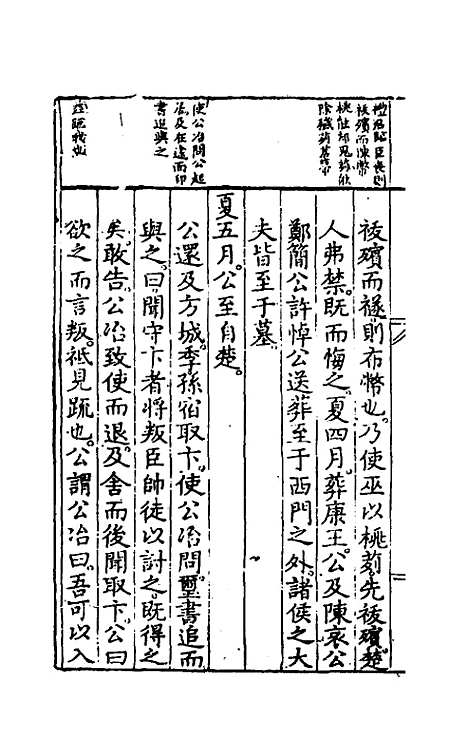 禮君臨臣喪則
祓殯而陳幣
桃能却鬼茢所
除穢
使公冶問公起
居及在途而印
書追與之
祓殯而襚。則布幣也。乃使巫以桃茢先祓殯。楚
人弗禁。既而悔之。夏四月。葬康王。公及陳哀公
鄭簡公許悼公送葬。至于西門之外。諸侯之大
夫皆至于墓。
夏五月。公至自楚。
公還及方城。季孫宿取卞。使公冶問。璽書追而
與之。曰。聞守卞者將叛。臣帥徒以討之。既得之
矣。敢告。公冶致使而退。及舍而後聞取卞。公曰
欲之而言叛。祇見疏也。公謂公冶曰。吾可以入